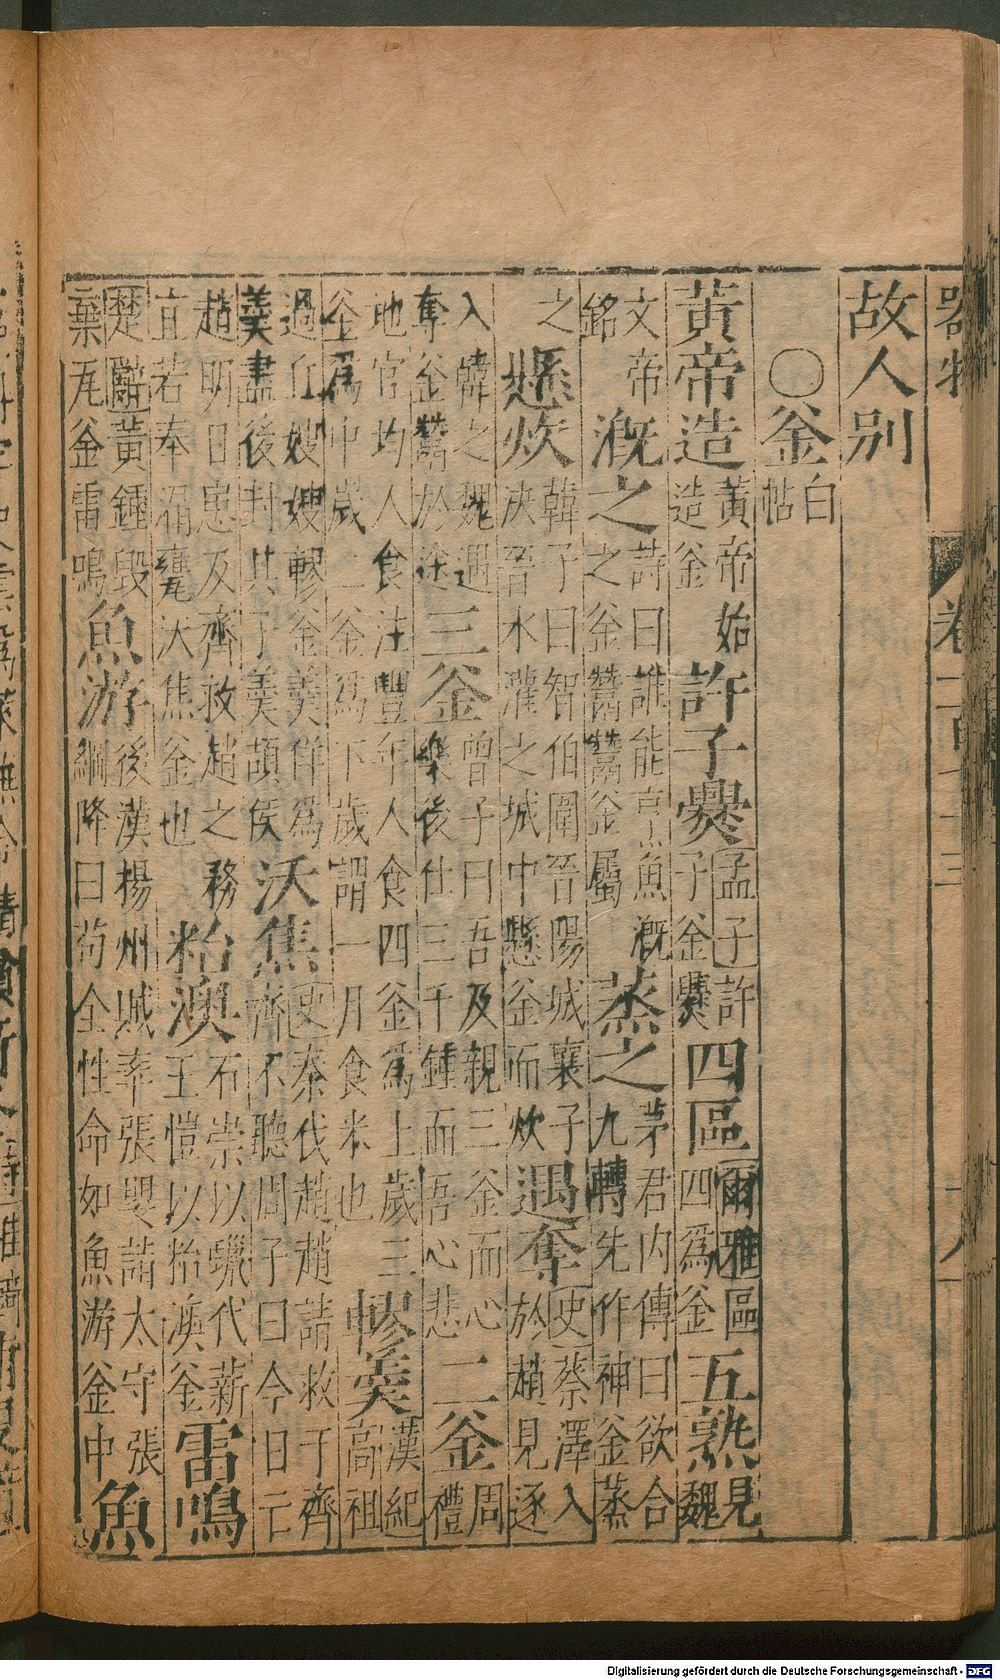 器物 卷二百二十三
故人別
○釜白帖
黃帝造黃帝始造釜許子爨孟子許子釜爨四區爾雅區四爲釜五熟見魏
文帝銘溉之詩曰誰能烹魚溉之釜鬵鬵釜屬蒸之茅君內傳曰欲合九轉先作神釜蒸
之懸炊韓子曰智伯圍晉陽城襄子決晉水灌之城中懸釜而炊遇奪史蔡澤入於趙見逐
入韓之魏遇奪釜鬵於塗三釜曾子曰吾及親三釜而心樂後仕三千鍾而吾心悲二釜周禮
地官均人食注豐年人食四釜爲上歲三釜爲中歲二釜爲下歲謂一月食米也轑羹漢紀高祖
過丘嫂嫂轑釜羹佯爲羹盡後封其子羹頡侯沃焦史秦伐趙趙請救于齊齊不聽周子曰今日亡
趙明日患及齊救趙之務宜若奉漏甕沃焦釜也澳石崇以蠟代薪王愷以澳釜雷鳴
楚辭黃鍾毀棄瓦釜雷鳴魚游後漢楊州賊率張嬰詣太守張綱降曰苟全性命如魚游釜中魚
Digitalisierung gefördert durch die Deutsche Forschungsgemeinschaft - DFG